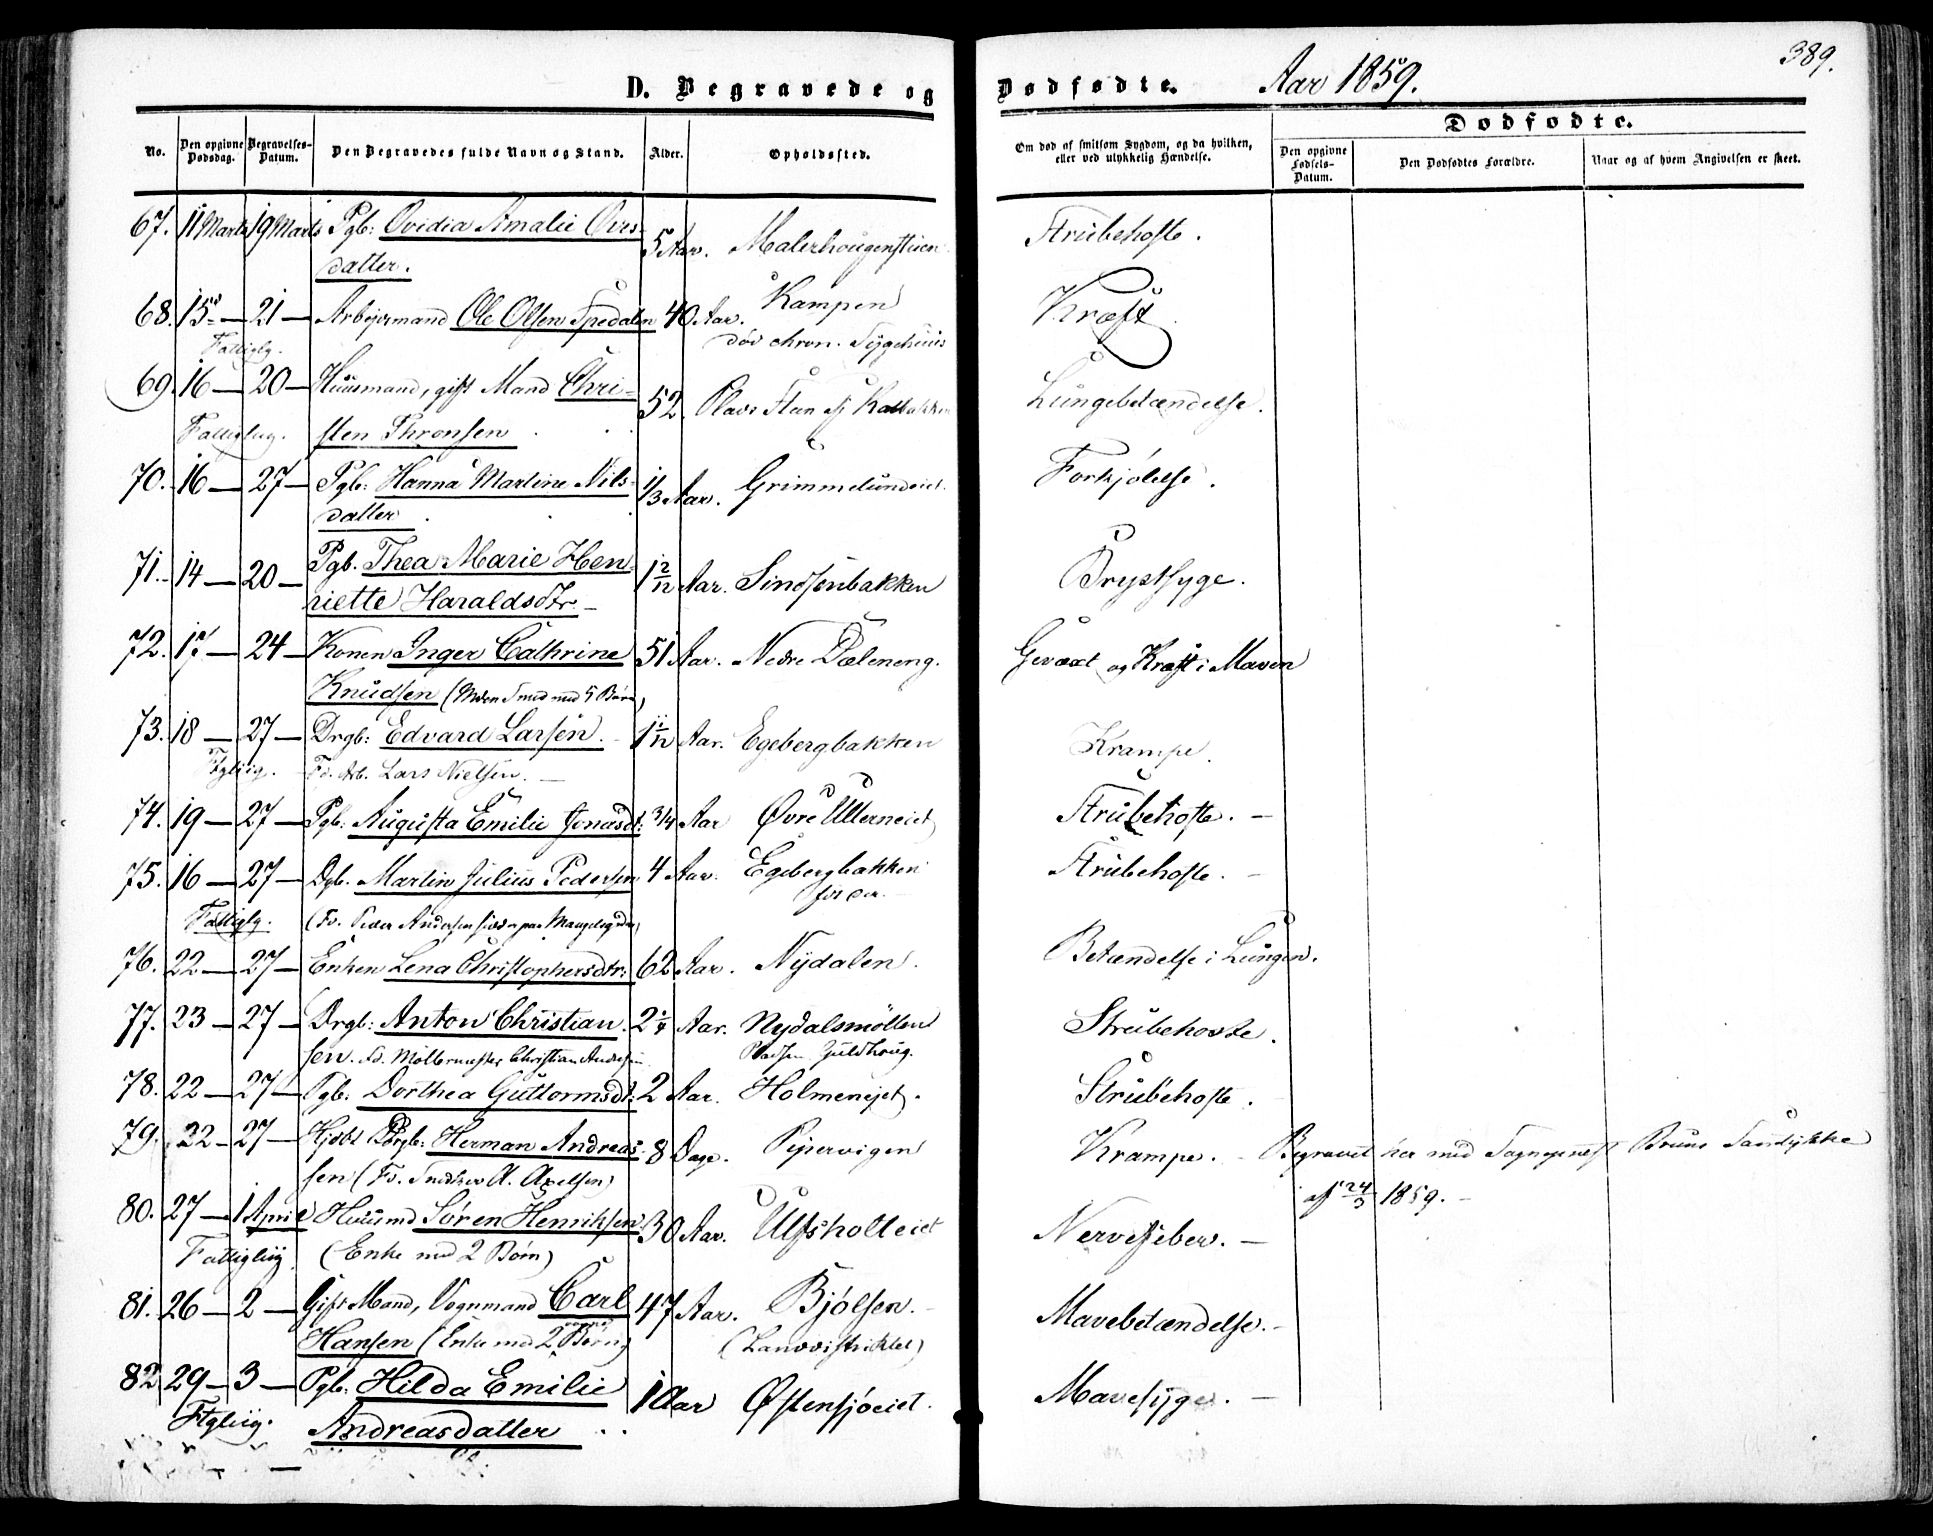 D. Begravede og Dødfødte. Aar 1859. 389.
Dødfødte.
No. Den opgivne Dødsdag. Begravelses-Datum. Den Begravedes fulde Navn og Stand. Alder. Opholdssted. Om død af smitsom Sygdom, og da hvilken, eller ved ulykkelig Hændelse. Den opgivne Fødsels-Datum. Den Dødfødtes Forældre. Naar og af hvem Angivelsen er skeet.
67. 11 Marts 19 Marts Pgb: Ovidia Amalie Ovis- 5 Aar. Malerhougenstuen Strubehoste.
datter.
68. 15 — 21 — Arbejdsmand Ole Olsen Spedalen 40 Aar. Kampen Kræft
Fattiglg. død chron. Sygehuus
69. 16 — 20 — Huusmand, gift Mand Chri- 52 Lungebetændelse.
Fattiglig. sten Thronsen
70. 16 — 27 — Pgb: Hanna Martine Nils- 1/3 Aar. Grimmelundeiet. Forkjølelse.
datter
71. 14 — 20 — Pgb. Thea Marie Hen- 1 2/12 Aar. Sinsenbakken Brystsyge.
riette Haraldsdtr —
72. 17 — 24 — Konen Inger Cathrine 51 Aar. Nedre Dæleneng. Gevæxt og Kræft i Maven
Knudsen (Mden Smed med 5 Børn)
73. 18 — 27 — Drgb: Edvard Larsen. 1 1/12 Aar. Egebergbakken Krampe.
Ftglig. Fd. Arb. Lars Nielsen. —
74. 19 — 27 — Pgb: Augusta Emilie Jonasdt: 3/4 Aar Øvre Ullerneiet Strubehoste. —
75. 16 — 27 — Dgb. Martin Julius Pedersen 4 Aar. Egebergbakken Strubehoste. —
Fattiglg. (Fd. Peder Andersen
76. 22 — 27 — Enken Lena Christophersdtr: 62 Aar. Nydalen. Betændelse i Lungen.
77. 23 — 27 — Drgb: Anton Christian 2 1/4 Aar. Nydalsmøllen Strubehoste.
sen. Fd. Møllermester Christian Andersen Pladsen Guldhoug.
78. 22 — 27 — Pgb: Dorthea Guttormsdt: 2 Aar. Holmenejet. Strubehoste.
79. 22 — 27 — Hjdbt Drgb: Herman Andreas- 8 Dage. Pipervigen Krampe. — Begravet her med Sognepræst Bruns Samtykke
sen (Fd. Snedker A. Axelsen) af 24/3 1859. —
80. 27 — 1 April Huusmd Søren Henriksen 30 Aar. Ulfsholteiet Nervefeber. —
Fattiglig (Enke med 2 Børn)
81. 26 — 2 — Gift Mand, Vognmand Carl 47 Aar. Bjølsen. Mavebetændelse. —
Hansen (Enke med 2 Børn) (Landdistriktet)
82 29 — 3 — Pgb: Hilda Emilie 1 Aar Østensjøeiet. Mavesyge. —
Ftglig. Andreasdatter